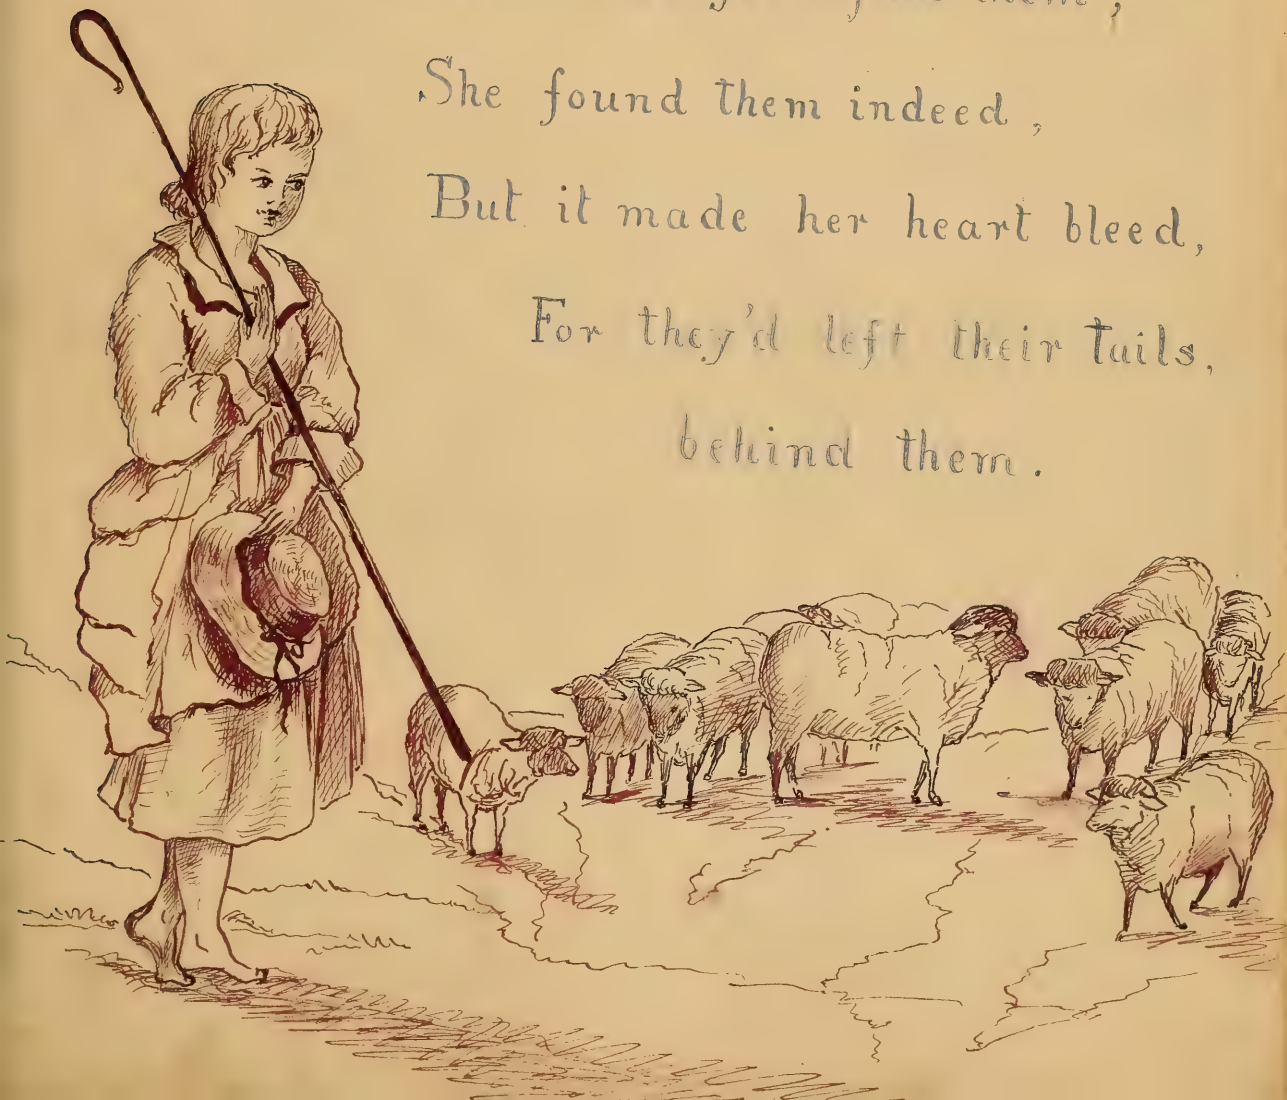 them,
She found them indeed,
But it made her heart bleed,
For they'd left their tails,
behind them.